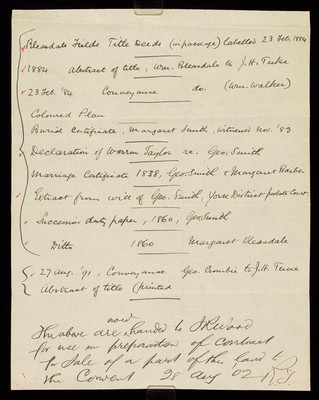 Bleasdale Fields Title Deeds (in package) labelled 23 Feb. 1884
1884 Abstract of title, Wm. Bleasdale to J.H. Tuke
23 Feb. '84 Conveyance do. (Wm. Walker)
Coloured Plan
Burial Certificate, Margaret Smith, witnessed Nov. '83
Declaration of Warren Taylor re. Geo. Smith
Marriage Certificate 1838, Geo. Smith & Margaret Barber
Extract from will of Geo. Smith, York District probate Court
Succession duty paper, 1860, Geo Smith
Ditto 1860 Margaret Bleasdale
27 Aug. '91, Conveyance Geo. Crombie to J.H. Tuke
Abstract of title (printed
now
The above are handed to J R Wood
for use in preparation of contract
for Sale of a part of the land to
the Convent 28 Aug 02